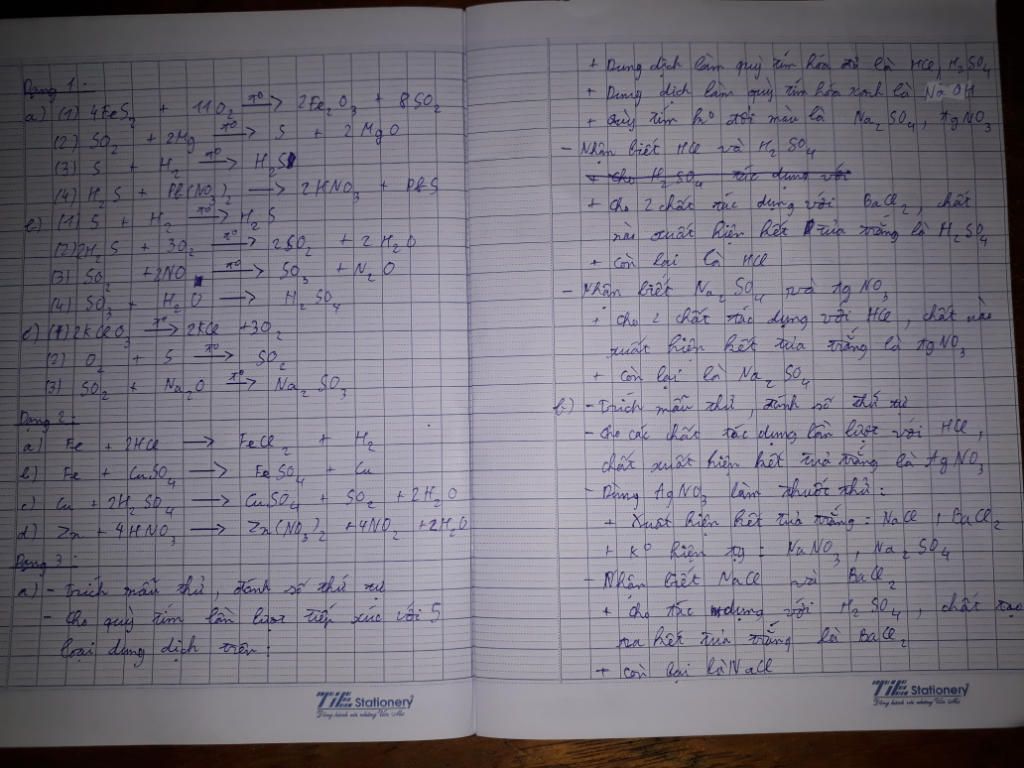 Dạng 1:
a) (1) 4FeS₂ + 11O₂ —t⁰→ 2Fe₂O₃ + 8SO₂
(2) SO₂ + 2Mg —t⁰→ S + 2MgO
(3) S + H₂ —t⁰→ H₂S
(4) H₂S + Pb(NO₃)₂ → 2HNO₃ + PbS
b) (1) S + H₂ —t⁰→ H₂S
(2) 2H₂S + 3O₂ —t⁰→ 2SO₂ + 2H₂O
(3) SO₂ + 2NO —t⁰→ SO₃ + N₂O
(4) SO₃ + H₂O → H₂SO₄
c) (1) 2KClO₃ —t⁰→ 2KCl + 3O₂
(2) O₂ + S —t⁰→ SO₂
(3) SO₂ + Na₂O —t⁰→ Na₂SO₃
Dạng 2:
a) Fe + 2HCl → FeCl₂ + H₂
b) Fe + CuSO₄ → FeSO₄ + Cu
c) Cu + 2H₂SO₄ → CuSO₄ + SO₂ + 2H₂O
d) Zn + 4HNO₃ → Zn(NO₃)₂ + 4NO₂ + 2H₂O
Dạng 3:
a) - Trích mẫu thử, đánh số thứ tự
- Cho quỳ tím lần lượt tiếp xúc với 5
loại dung dịch trên:
TiE Stationery
Đồng hành với những Ước Mơ
+ Dung dịch làm quỳ tím hóa đỏ là HCl, H₂SO₄
+ Dung dịch làm quỳ tím hóa xanh là NaOH
+ Quỳ tím k⁰ đổi màu là Na₂SO₄, AgNO₃
- Nhận biết HCl và H₂SO₄
+ Cho H₂SO₄ tác dụng với
+ Cho 2 chất tác dụng với BaCl₂, chất
nào xuất hiện kết tủa trắng là H₂SO₄
+ Còn lại là HCl
- Nhận biết Na₂SO₄ và AgNO₃
+ Cho 2 chất tác dụng với HCl, chất nào
xuất hiện kết tủa trắng là AgNO₃
+ Còn lại là Na₂SO₄
b) - Trích mẫu thử, đánh số thứ tự
- Cho các chất tác dụng lần lượt với HCl,
chất xuất hiện kết tủa trắng là AgNO₃
- Dùng AgNO₃ làm thuốc thử:
+ Xuất hiện kết tủa trắng: NaCl, BaCl₂
+ K⁰ hiện tg: NaNO₃, Na₂SO₄
- Nhận biết NaCl và BaCl₂
+ Cho tác dụng với H₂SO₄, chất tạo
ra kết tủa trắng là BaCl₂
+ Còn lại là NaCl
TiE Stationery
Đồng hành với những Ước Mơ